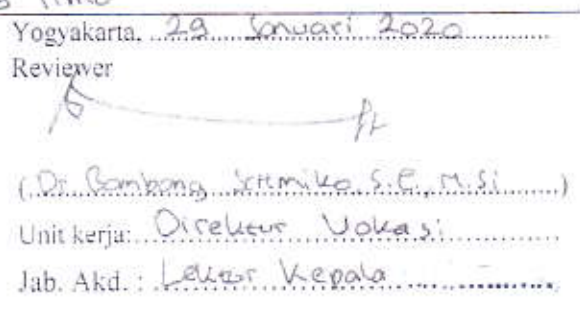 Yogyakarta, 29 Januari 2020
Reviewer
(Dr Bambang Jatmiko S.E., M.Si)
Unit kerja: Direktur Vokasi
Jab. Akd. : Lektor Kepala